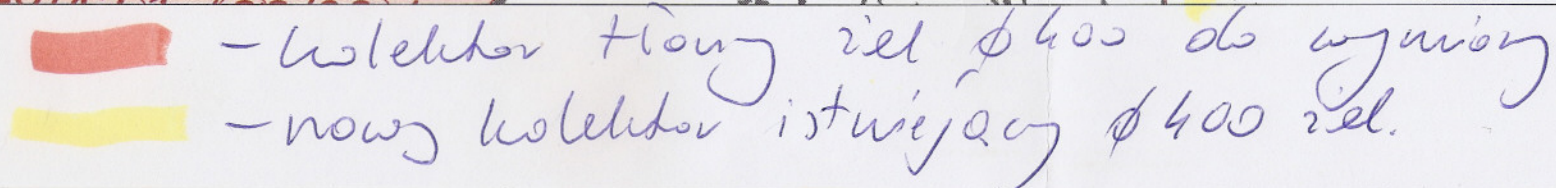 - kolektor tłowy żel ϕ400 do wymiany
- nowy kolektor istniejący ϕ400 żel.